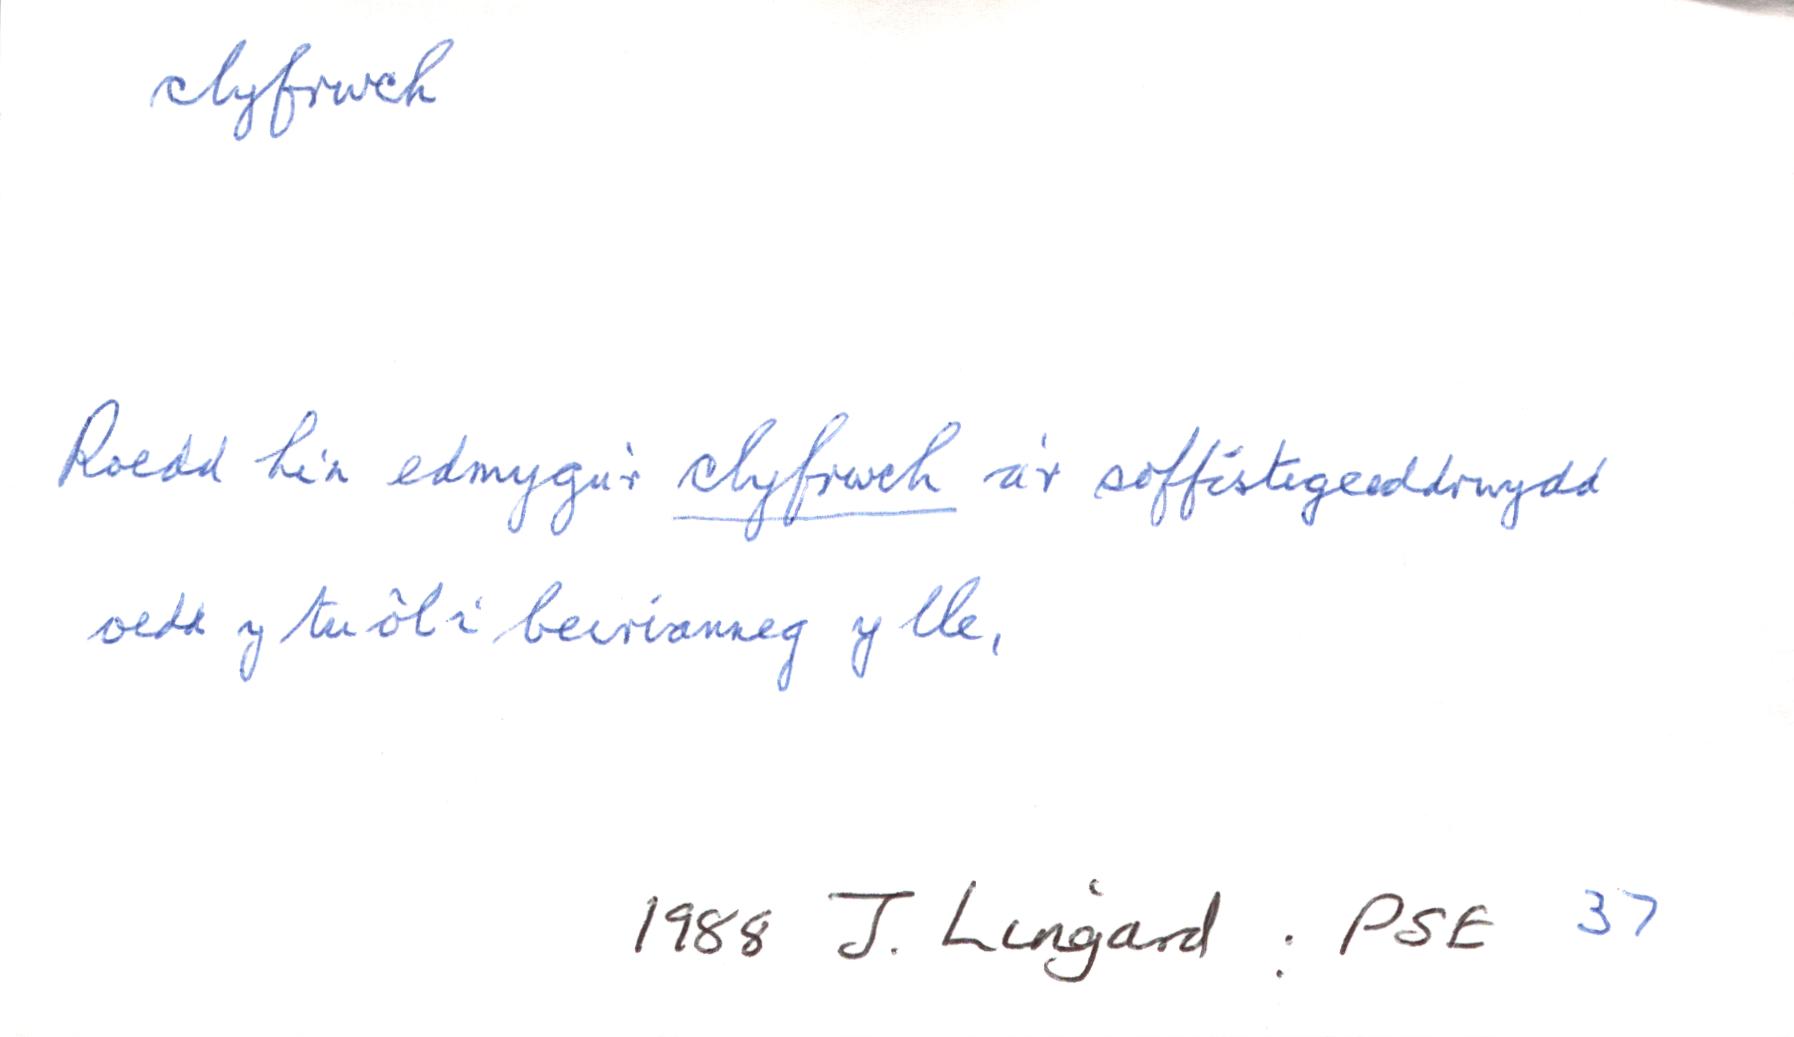 clyfrwch
Roedd hi'n edmygu'r clyfrwch a'r soffistigeiddrwydd
oedd y tu ôl i beirianneg y lle,
1988 J. Lingard : PSE 37